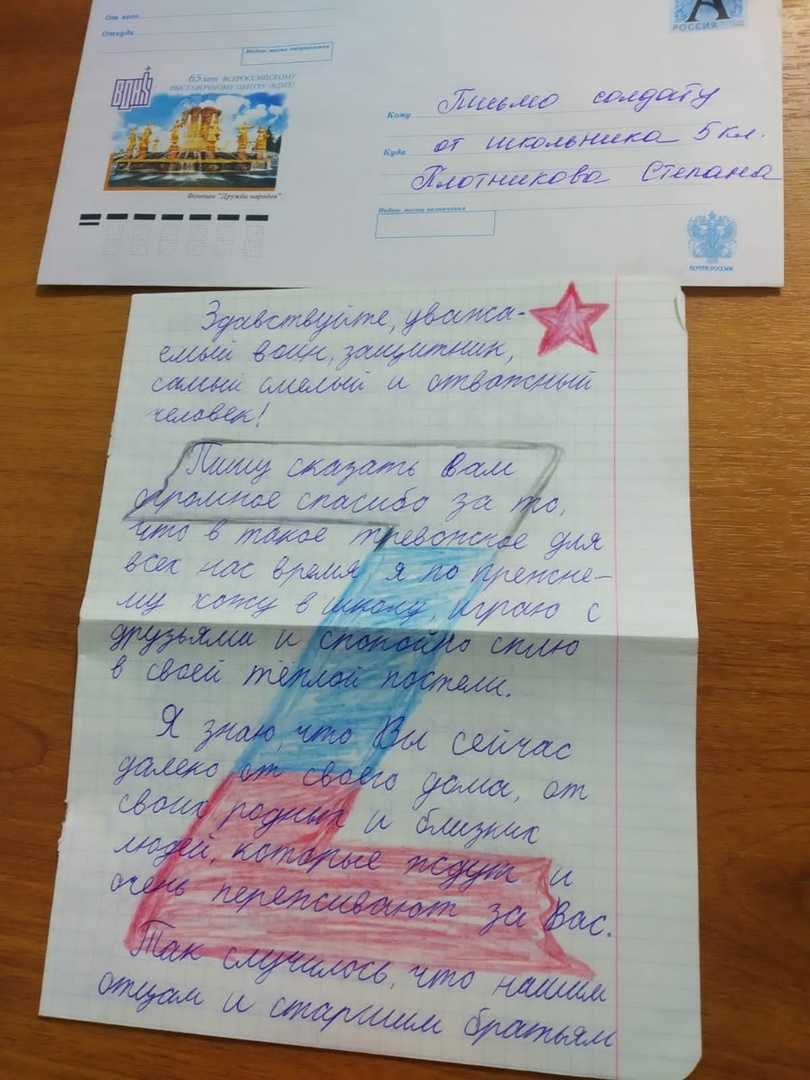 От кого
Откуда
Индекс места отправления
РОССИЯ
А
ВДНХ
65 лет ВСЕРОССИЙСКОМУ
ВЫСТАВОЧНОМУ ЦЕНТРУ (ВДНХ)
Фонтан "Дружба народов"
Кому Письмо солдату
Куда от школьника 5 кл.
Плотникова Степана
Индекс места назначения
ПОЧТА РОССИИ
Здравствуйте, уважа-
емый воин, защитник,
самый смелый и отважный
человек!
Пишу сказать Вам
огромное спасибо за то,
что в такое тревожное для
всех нас время я по прежне-
му хожу в школу, играю с
друзьями и спокойно сплю
в своей тёплой постели.
Я знаю, что Вы сейчас
далеко от своего дома, от
своих родных и близких
людей, которые ждут и
очень переживают за Вас.
Так случилось, что нашим
отцам и старшим братьям